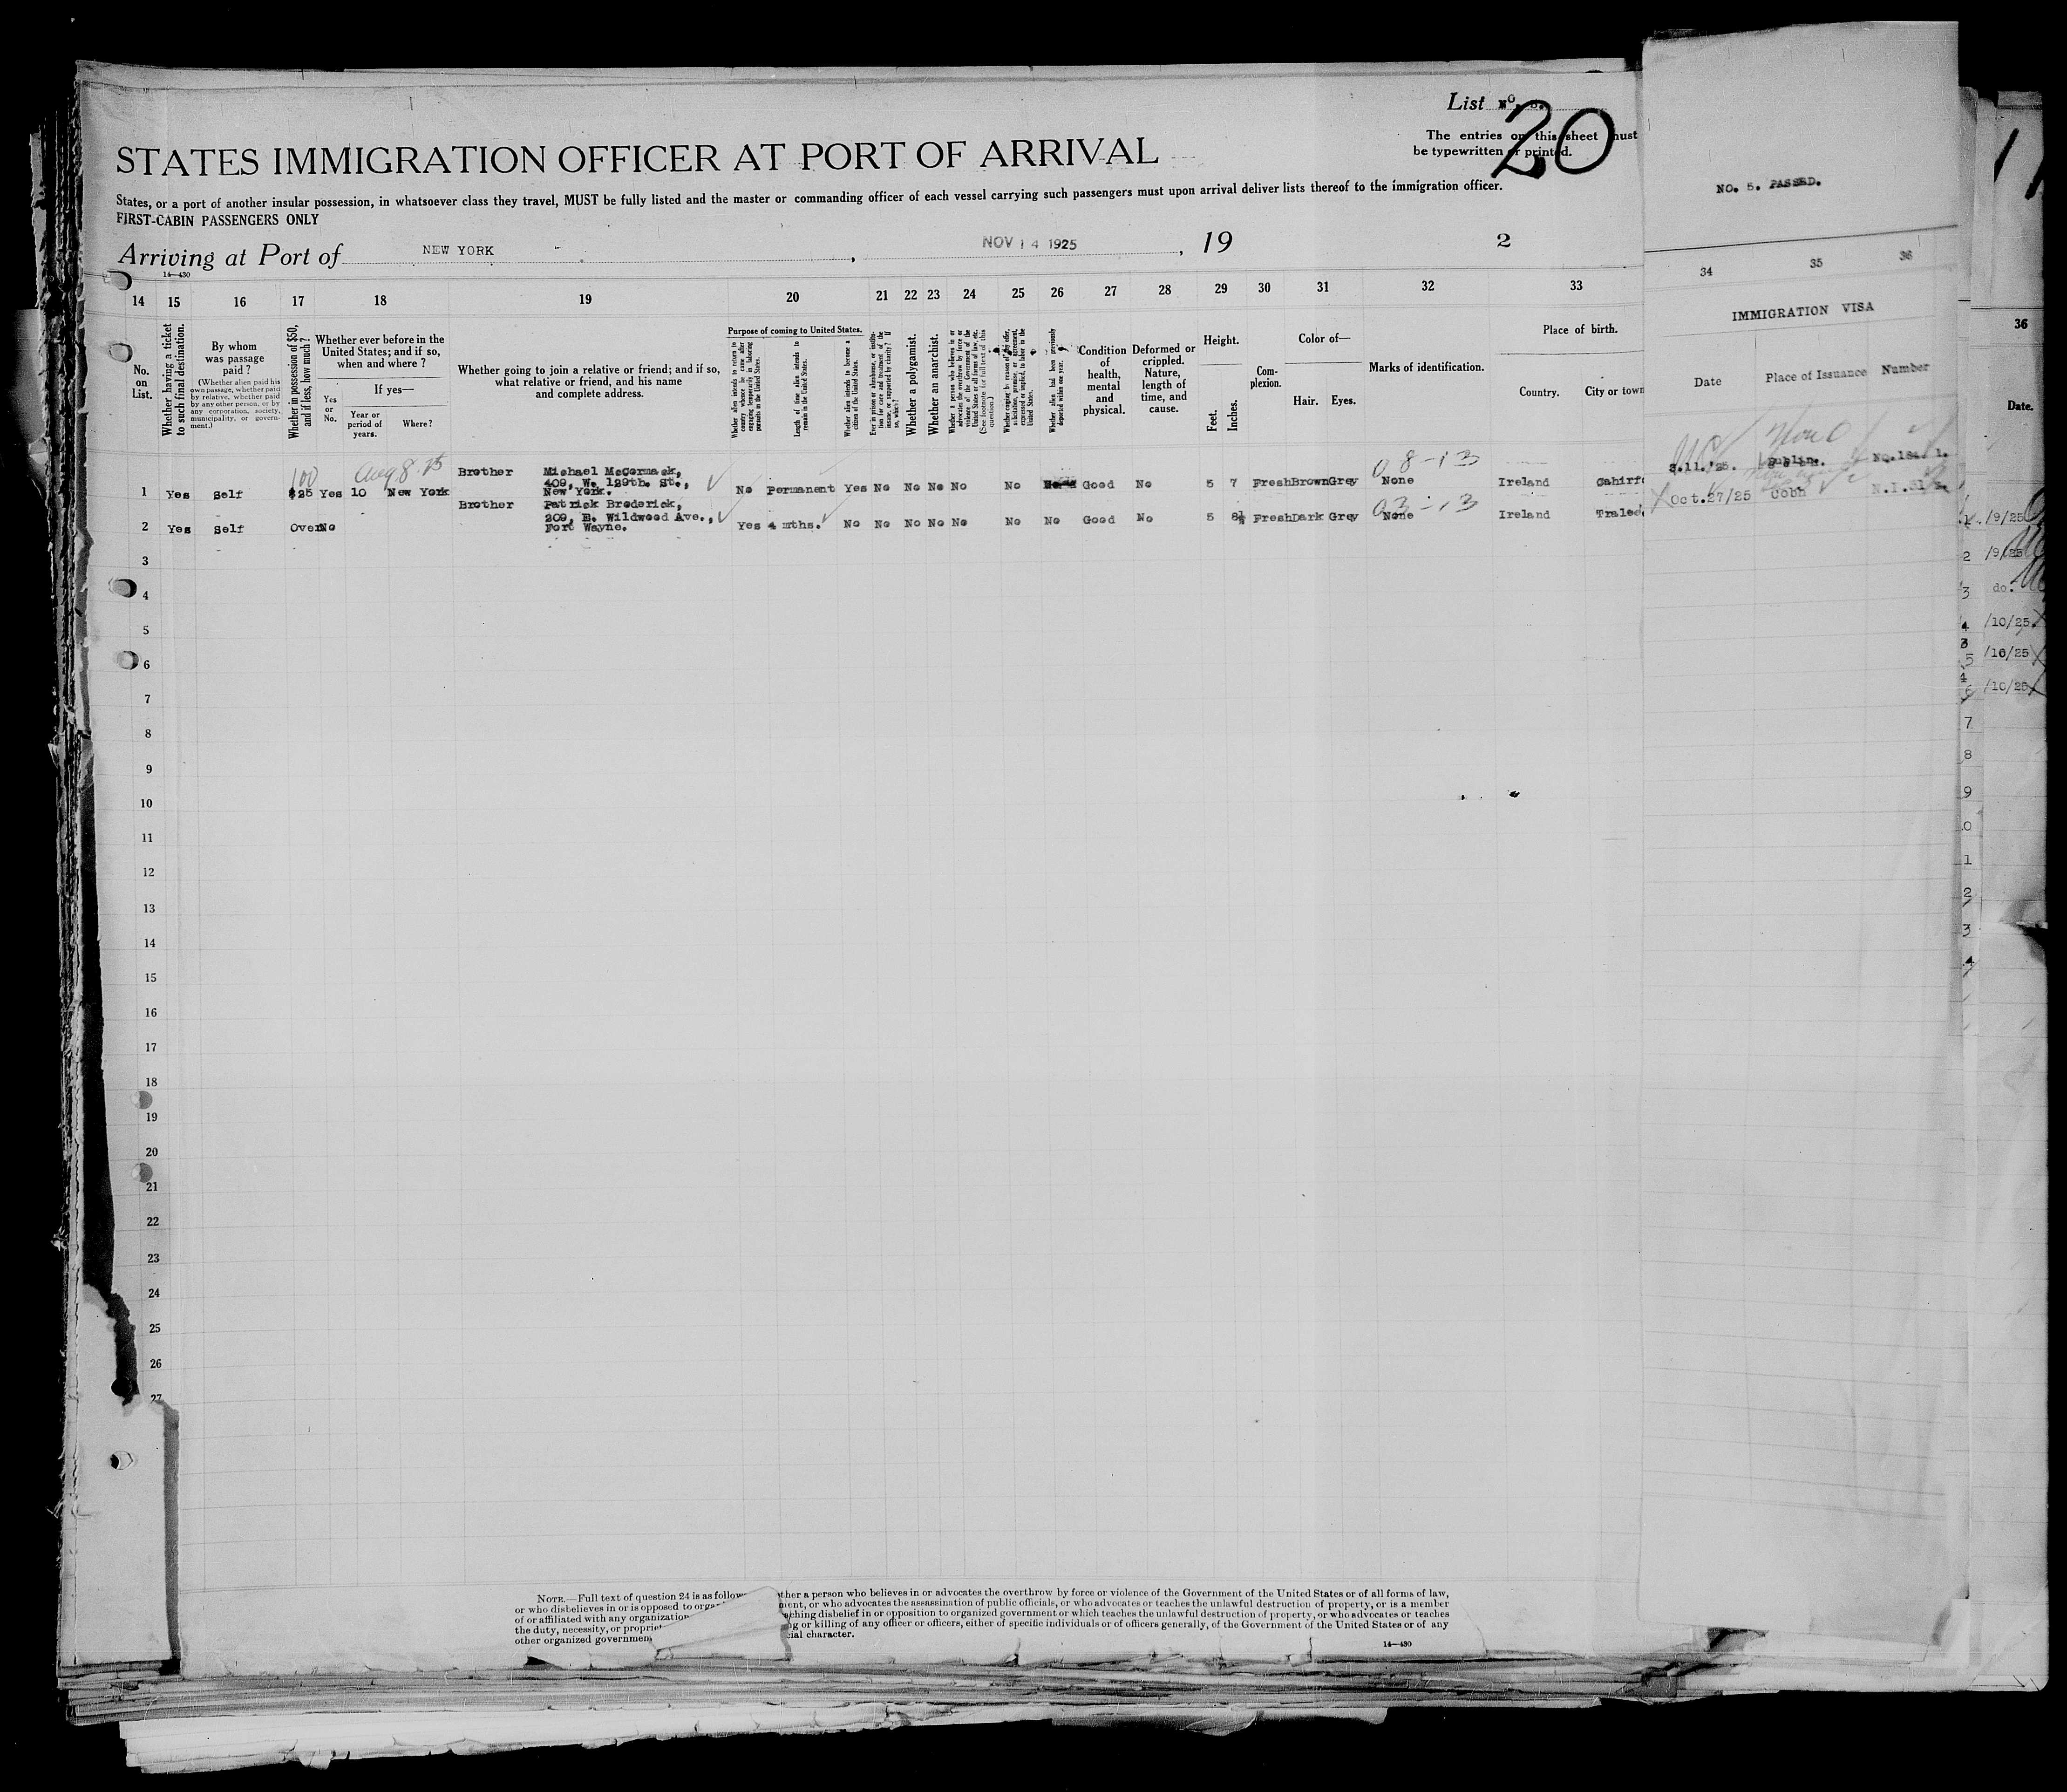 List No. 5.
20
The entries on this sheet must
be typewritten or printed.
STATES IMMIGRATION OFFICER AT PORT OF ARRIVAL
States, or a port of another insular possession, in whatsoever class they travel, MUST be fully listed and the master or commanding officer of each vessel carrying such passengers must upon arrival deliver lists thereof to the immigration officer.
FIRST-CABIN PASSENGERS ONLY
Arriving at Port of NEW YORK, NOV 14 1925, 19 2
14—430
NO. 5. PASSED.
14 15 16 17 18 19 20 21 22 23 24 25 26 27 28 29 30 31 32 33 34 35 36
No. on List.
Whether having a ticket to such final destination.
By whom was passage paid?
(Whether alien paid his own passage, whether paid by relative, whether paid by any other person, or by any corporation, society, municipality, or government.)
Whether in possession of $50, and if less, how much?
Whether ever before in the United States; and if so, when and where?
Yes or No.
If yes—
Year or period of years.
Where?
Whether going to join a relative or friend; and if so, what relative or friend, and his name and complete address.
Purpose of coming to United States.
Whether alien intends to return to country whence he came after engaging temporarily in laboring pursuits in the United States.
Length of time alien intends to remain in the United States.
Whether alien intends to become a citizen of the United States.
Ever in prison or almshouse, or institution for care and treatment of the insane, or supported by charity? If so, which?
Whether a polygamist.
Whether an anarchist.
Whether a person who believes in or advocates the overthrow by force or violence of the Government of the United States or all forms of law, etc. (See footnote for full text of this question.)
Whether coming by reason of any offer, solicitation, promise, or agreement, expressed or implied, to labor in the United States.
Whether alien had been previously deported within one year.
Condition of health, mental and physical.
Deformed or crippled. Nature, length of time, and cause.
Height.
Feet. Inches.
Complexion.
Color of—
Hair. Eyes.
Marks of identification.
Place of birth.
Country. City or town
IMMIGRATION VISA
Date Place of Issuance Number
36
Date.
100 Aug 8. 08-13
1 Yes Self $25 Yes 10 New York Brother Michael McCormack, 409, W. 129th. St., New York. No Permanent Yes No No No No No Good No 5 7 Fresh Brown Grey None Ireland Cahirf 3.11.'25. Dublin.
03-13
2 Yes Self Over No Brother Patrick Broderick, 209, E. Wildwood Ave., Fort Wayne. Yes 4 mths. No No No No No No No Good No 5 8½ Fresh Dark Grey None Ireland Tralee Oct.27/25 Cobh
3
4
5
6
7
8
9
10
11
12
13
14
15
16
17
18
19
20
21
22
23
24
25
26
27
/9/25
/9/25
do.
/10/25
/10/25
/10/25
NOTE.—Full text of question 24 is as follow ther a person who believes in or advocates the overthrow by force or violence of the Government of the United States or of all forms of law,
or who disbelieves in or is opposed to organ ment, or who advocates the assassination of public officials, or who advocates or teaches the unlawful destruction of property, or is a member
of or affiliated with any organization ching disbelief in or opposition to organized government or which teaches the unlawful destruction of property, or who advocates or teaches
the duty, necessity, or propriet ng or killing of any officer or officers, either of specific individuals or of officers generally, of the Government of the United States or of any
other organized governmen cial character.
14—430